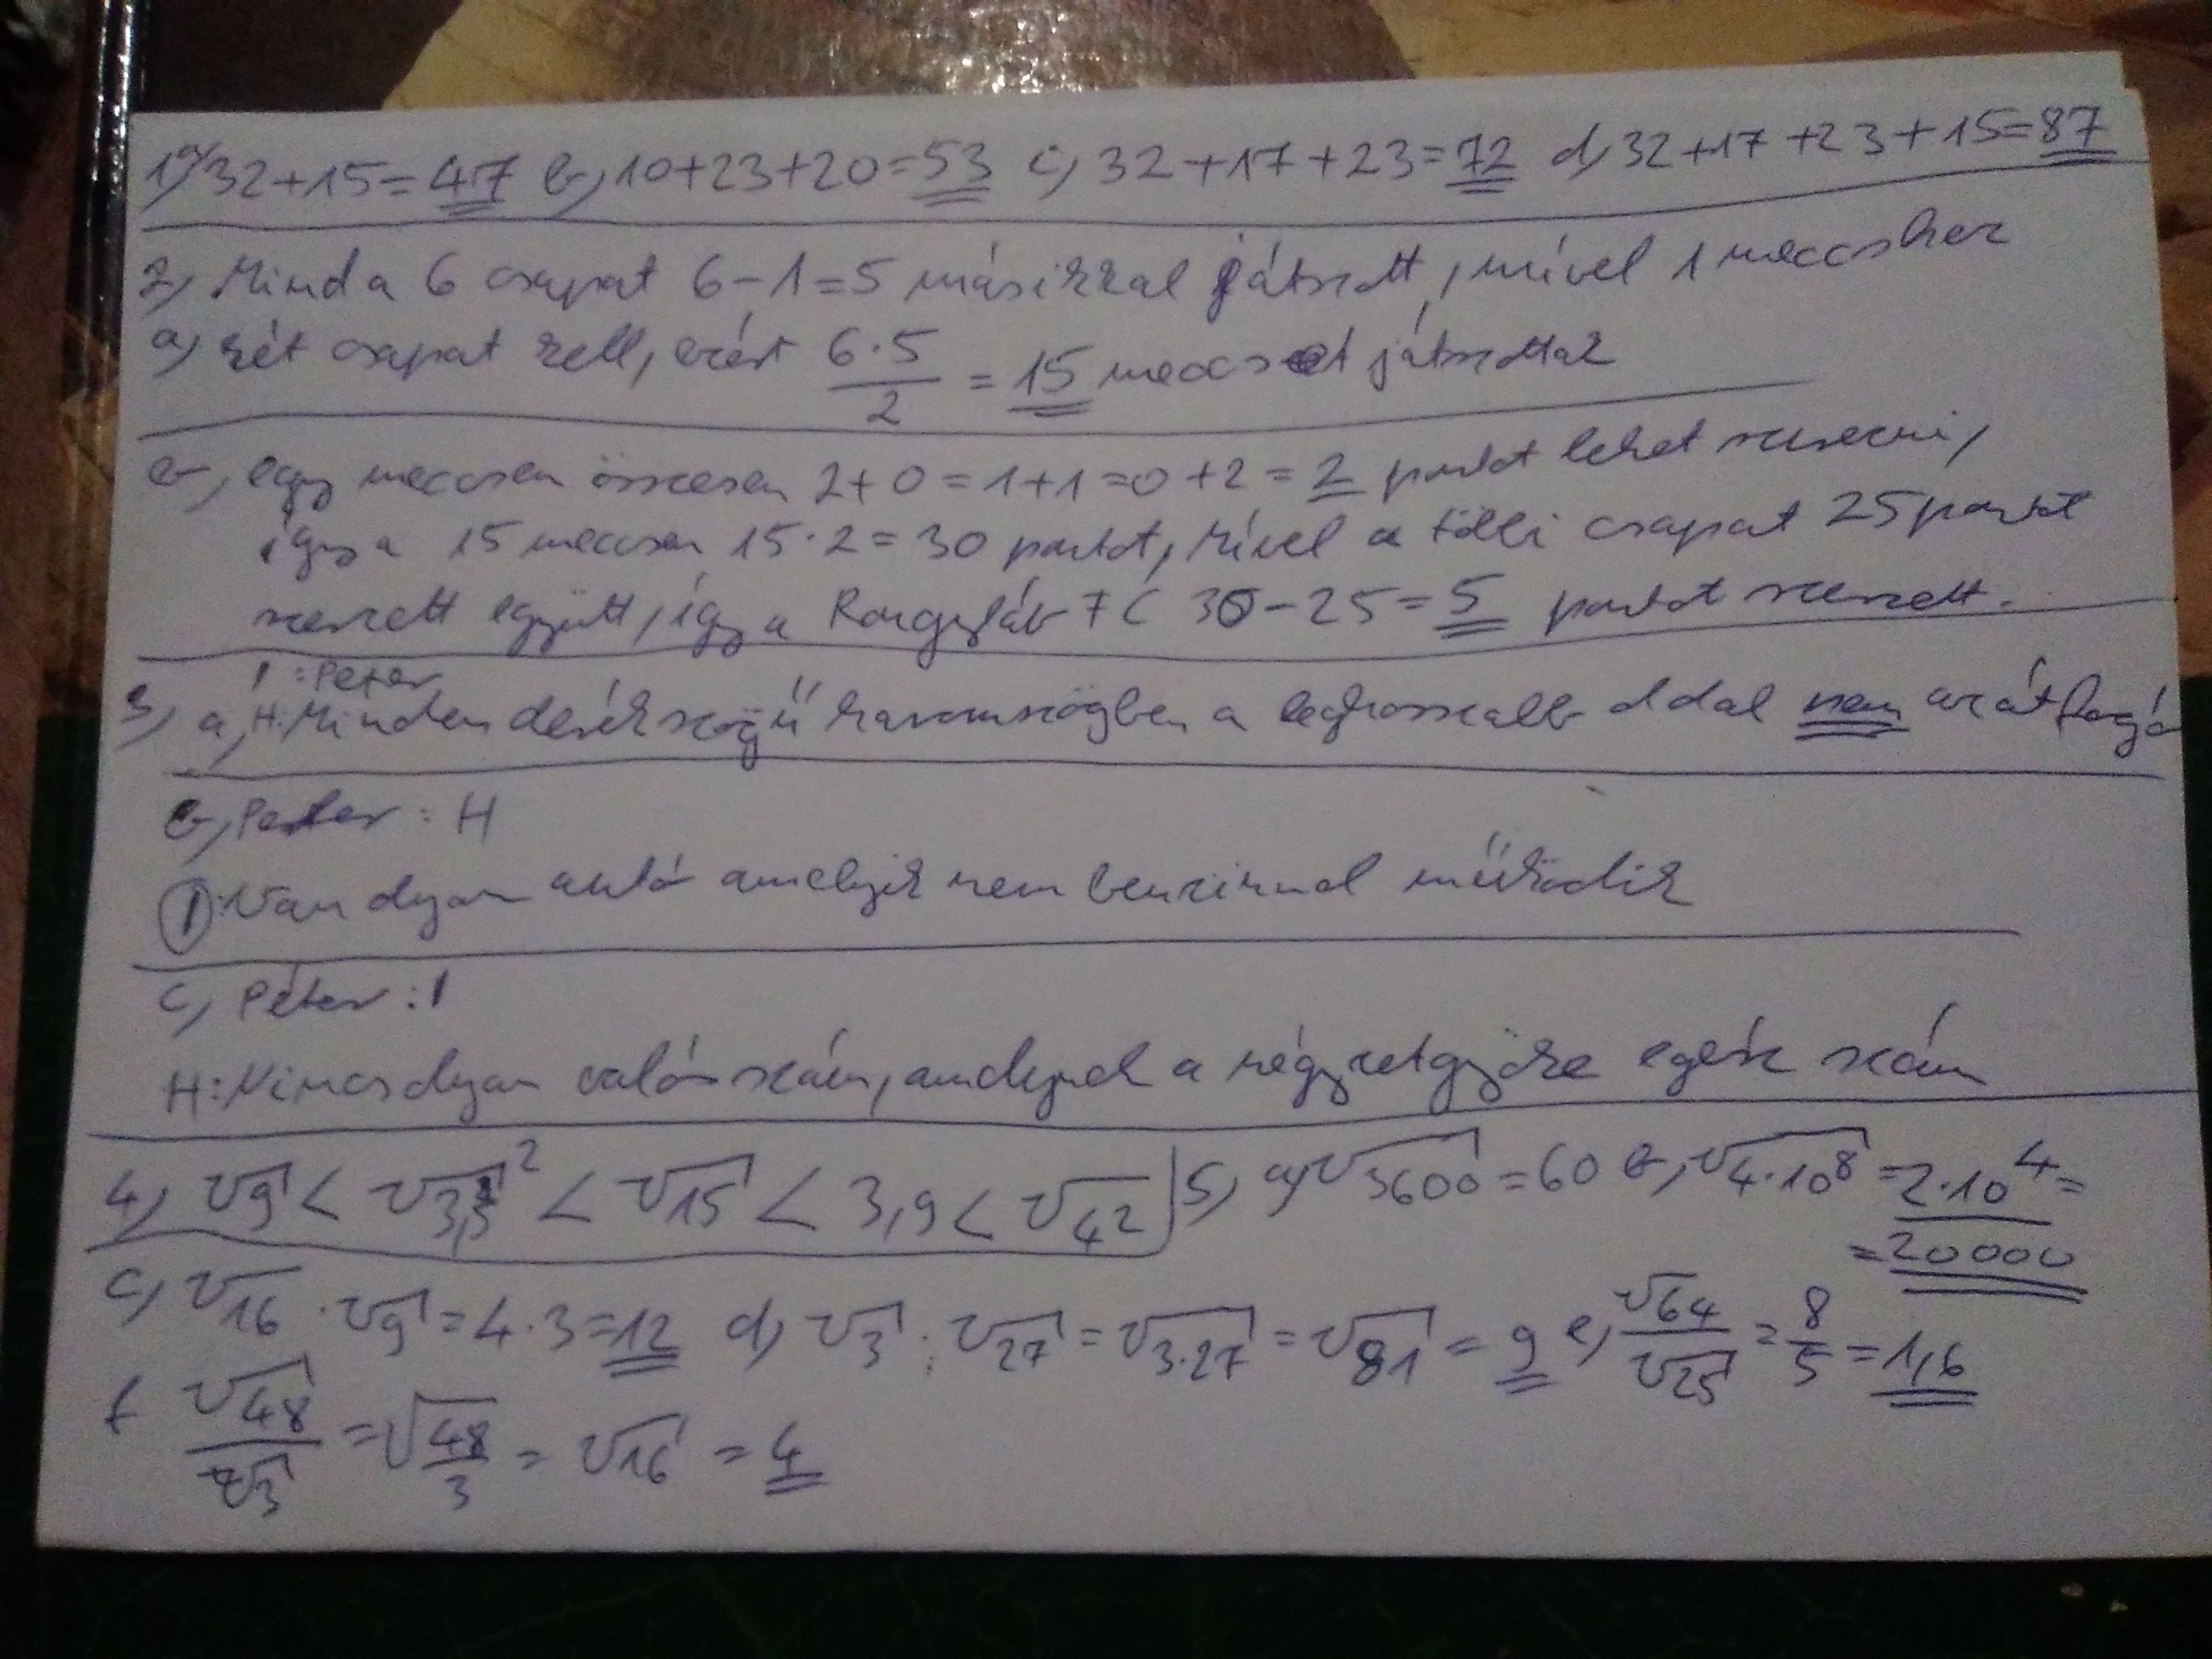 1, a, 32+15=47 b, 10+23+20=53 c, 32+17+23=72 d, 32+17+23+15=87
2, Mind a 6 csapat 6-1=5 másikkal játszott, mivel 1 meccshez
a, két csapat kell, ezért 6·5/2 = 15 meccset játszottak
b, egy meccsen összesen 2+0=1+1=0+2=2 pontot lehet szerezni,
így a 15 meccsen 15·2=30 pontot, Mivel a többi csapat 25 pontot
szerzett együtt, így a Rongyláb FC 30-25=5 pontot szerzett.
I: Péter
3, a, H: Minden derékszögű háromszögben a leghosszabb oldal nem az átfogó
b, Péter: H
I: Van olyan autó amelyik nem benzinnel működik
c, Péter: I
H: Nincs olyan valós szám, amelynek a négyzetgyöke egész szám
4, √9 < √3,5² < √15 < 3,9 < √42 5, a, √3600=60 b, √4·10⁸ =2·10⁴=
=20000
c, √16 · √9=4·3=12 d, √3 · √27=√3·27=√81=9 e, √64/√25=8/5=1,6
f √48/√3=√48/3=√16=4